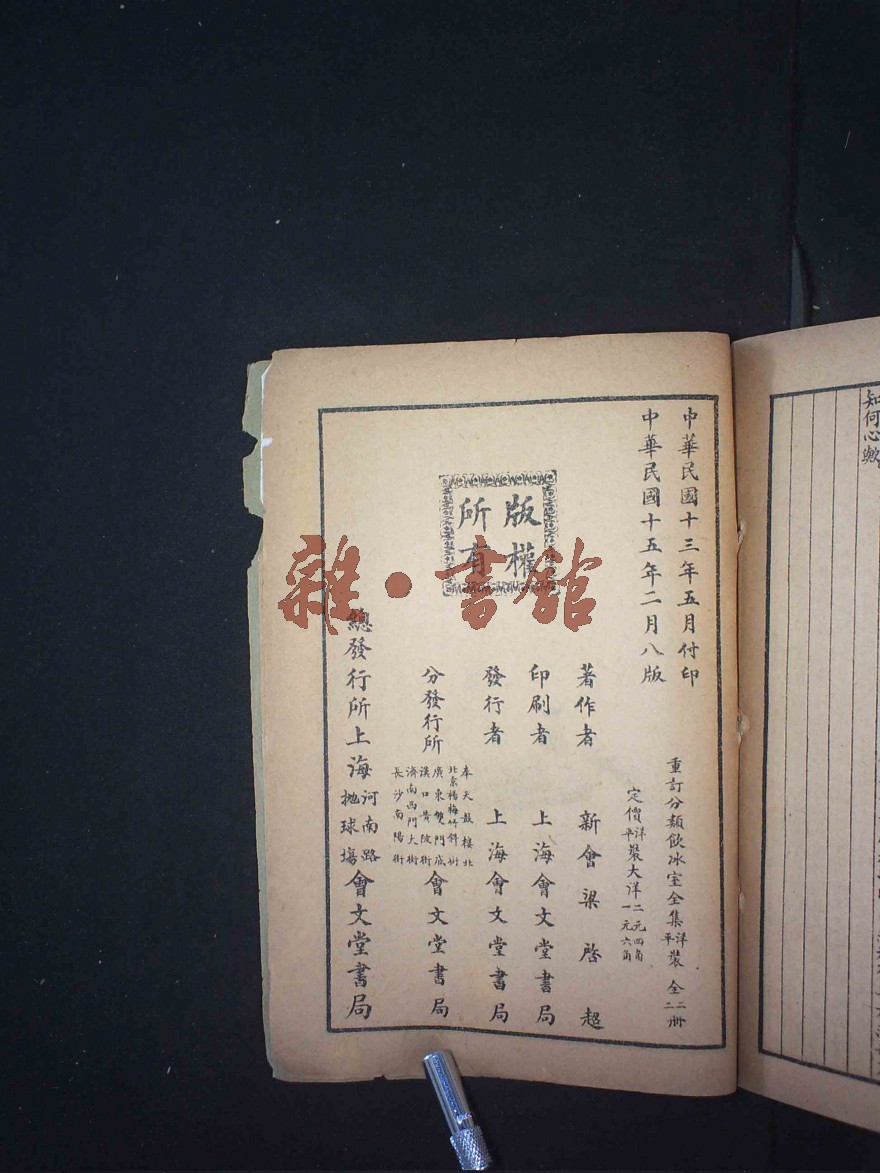 中華民國十三年五月付印
中華民國十五年二月八版
重訂分類飲冰室全集洋平裝 全二冊
定價洋平裝大洋二元四角一元六角
版權
所有
著作者 新會梁啓超
印刷者 上海會文堂書局
發行者 上海會文堂書局
分發行所
奉天鼓樓北
北京楊梅竹斜街
廣東雙門底
漢口黄陂街
濟南西門大街
長沙南陽街
會文堂書局
總發行所上海河南路拋球塲會文堂書局
雜·書舘
知何心歟